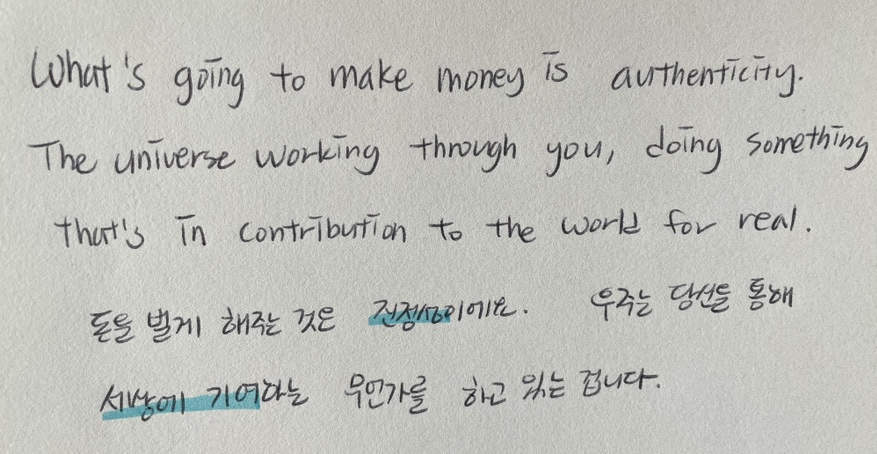 What's going to make money is authenticity.
The universe working through you, doing something
that's in contribution to the world for real.
돈을 벌게 해주는 것은 진정성이에요. 우주는 당신을 통해
세상에 기여하는 무언가를 하고 있는 겁니다.